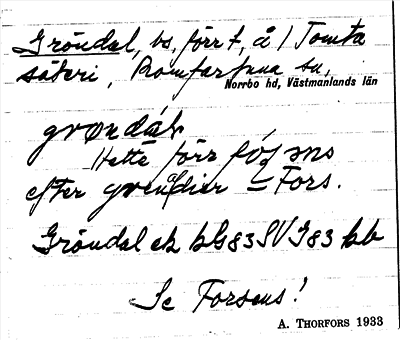 Gröndal, bs, förr t, å / Tomta
säteri, Romfartuna sn,
Norrbo hd, Västmanlands län
Hette förr
efter = Fors.
Gröndal ek bG83SV J83 bb
Se Forsens!
A. THORFORS 1933